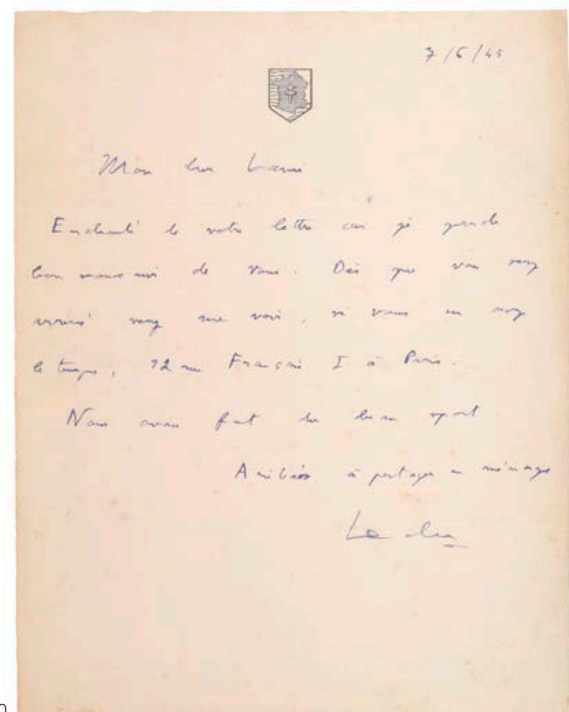 7/6/45
Mon cher
Enchanté de votre lettre car je garde
bon souvenir de vous. Dès que vous serez
venez me voir, si vous en avez
le temps, 12 rue François I à Paris.
Nous avons fait du beau sport
Amitiés à partager en ménage
0